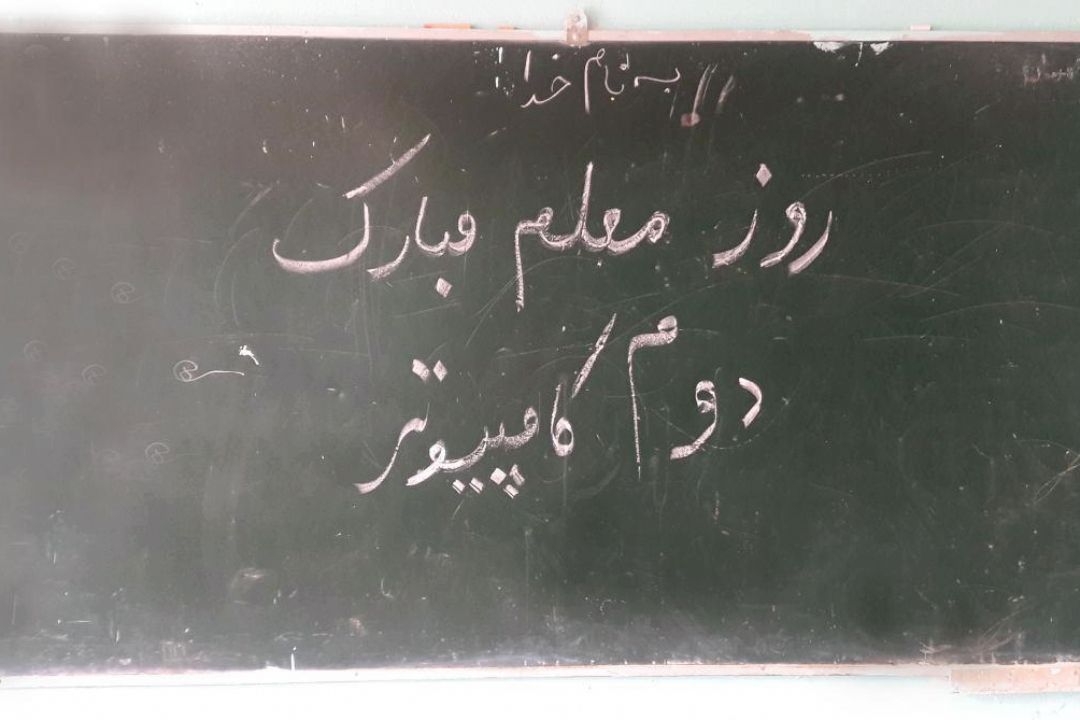 به نام خدا
روز معلم مبارک
دوم کامپیوتر